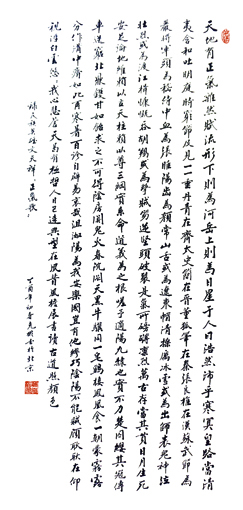 天地有正氣雜然賦流形下則為河岳上則為日星于人曰浩然沛乎塞冥皇路當清
夷含和吐明庭時窮節乃見一一垂丹青在齊太史簡在晉董狐筆在秦張良椎在漢蘇武節為
嚴將軍頭為嵇侍中血為張睢陽齒為顏常山舌或為遼東帽清操厲冰雪或為出師表鬼神泣
壯烈或為渡江楫慷慨吞胡羯或為擊賊笏逆豎頭破裂是氣所磅礴凜烈萬古存當其貫日月生死
安足論地維賴以立天柱賴以尊三綱實系命道義為之根嗟予遘陽九隸也實不力楚囚纓其冠傳
車送窮北鼎鑊甘如飴求之不可得陰房闃鬼火春院閟天黑牛驥同一皂雞棲鳳凰食一朝蒙霧露
分作溝中瘠如此再寒暑百沴自辟易哀哉沮洳場為我安樂國豈有他繆巧陰陽不能賊顧此耿耿在仰
視浮白雲悠悠我心悲蒼天曷有極哲人日已遠典型在夙昔風檐展書讀古道照顏色
錄民族英雄文天祥正氣歌
丁酉年初春書於北京